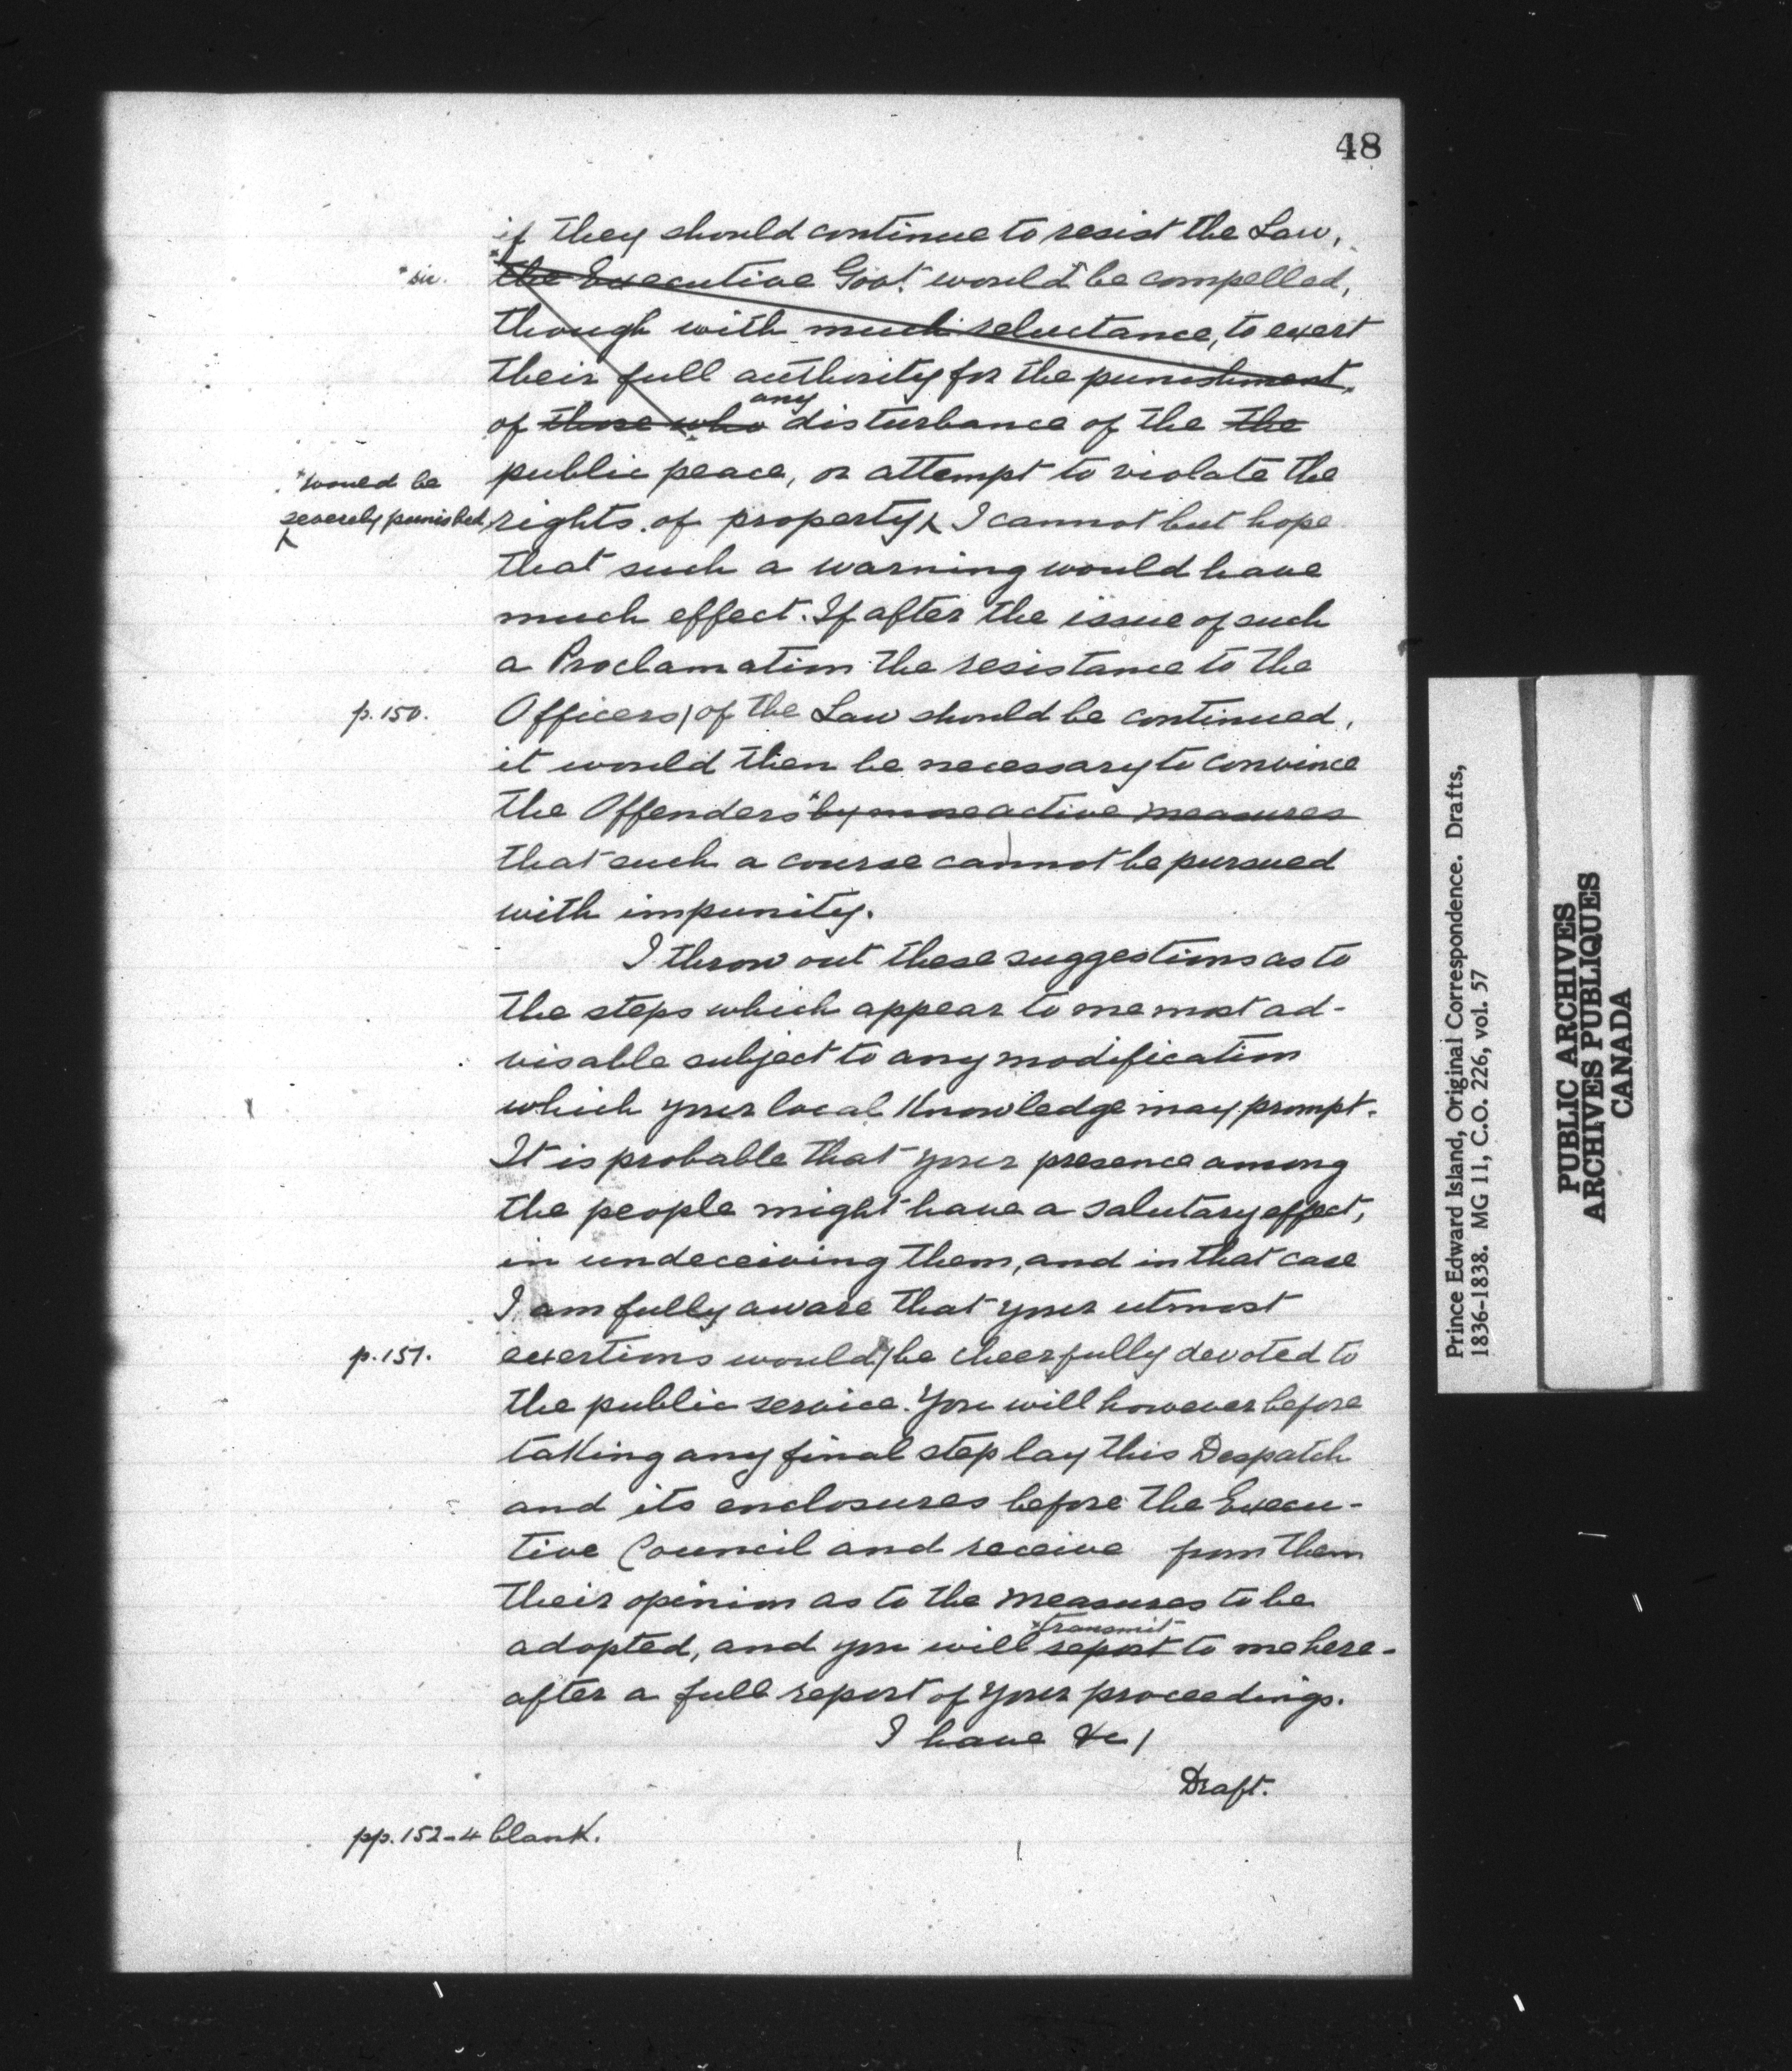 48
if they should continue to resist the Law,
* sic.
*the Executive Govt. would be compelled,
though with much reluctance, to exert
their full authority for the punishment,
any
of those who disturbance of the the
public peace, or attempt to violate the
*would be
severely punished,
rights of property, I cannot but hope
that such a warning would have
much effect. If after the issue of such
a Proclamation the resistance to the
p. 150.
Officers/of the Law should be continued,
it would then be necessary to convince
the Offenders by more active measures
that such a course cannot be pursued
with impunity.
I throw out these suggestions as to
the steps which appear to me most ad-
visable subject to any modification
which your local Knowledge may prompt.
It is probable that your presence among
the people might have a salutary effect,
in undeceiving them, and in that case
I am fully aware that your utmost
p. 151.
exertions would/be cheerfully devoted to
the public service. You will however before
taking any final step lay this Despatch
and its enclosures before the Execu-
tive Council and receive from them
their opinion as to the measures to be
*transmit
adopted, and you will report to me here-
after a full report of your proceedings.
I have &c/
Draft.
pp. 152-4 blank.
Prince Edward Island, Original Correspondence. Drafts,
1836-1838. MG 11, C.O. 226, vol. 57
PUBLIC ARCHIVES
ARCHIVES PUBLIQUES
CANADA